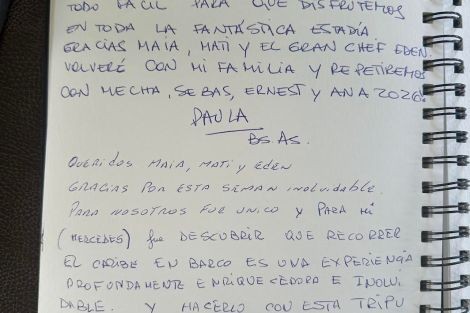 TODO FACIL PARA QUE DISFRUTEMOS
EN TODA LA FANTÁSTICA ESTADÍA.
GRACIAS MAIA, MATI Y EL GRAN CHEF EDEN.
VOLVERÉ CON MI FAMILIA Y REPETIREMOS
CON MECHA, SEBAS, ERNEST Y ANA 2026!
PAULA
BS. AS.
QUERIDOS MAIA, MATI Y EDEN
GRACIAS POR ESTA SEMAN INOLVIDABLE.
PARA NOSOTROS FUE UNICO Y PARA MÍ
(MERCEDES) fue DESCUBRIR QUE RECORRER
EL CARIBE EN BARCO ES UNA EXPERIENCIA
PROFUNDAMENTE ENRIQUECEDORA E INOLVI
DABLE. Y HACERLO CON ESTA TRIPU